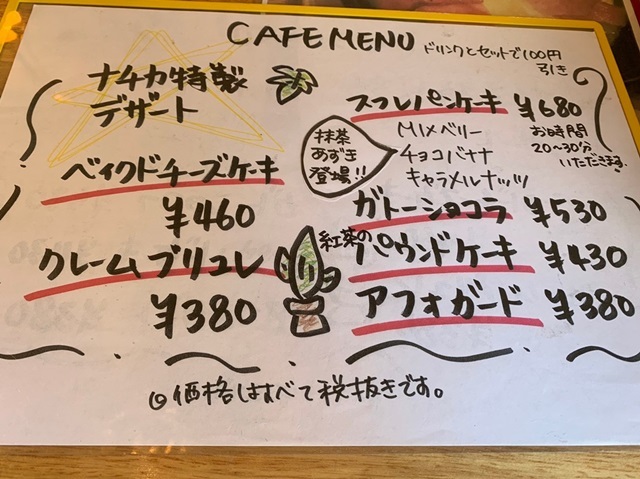 CAFE MENU
ドリンクとセットで100円
引き
ナチカ特製
デザート
ベイクドチーズケーキ
¥460
クレームブリュレ
¥380
スフレパンケーキ ¥680
抹茶
あずき
登場!!
MIXベリー
チョコバナナ
キャラメルナッツ
お時間
20~30分
いただきます
ガトーショコラ ¥530
紅茶のパウンドケーキ ¥430
アフォガード ¥380
◎価格はすべて税抜きです。